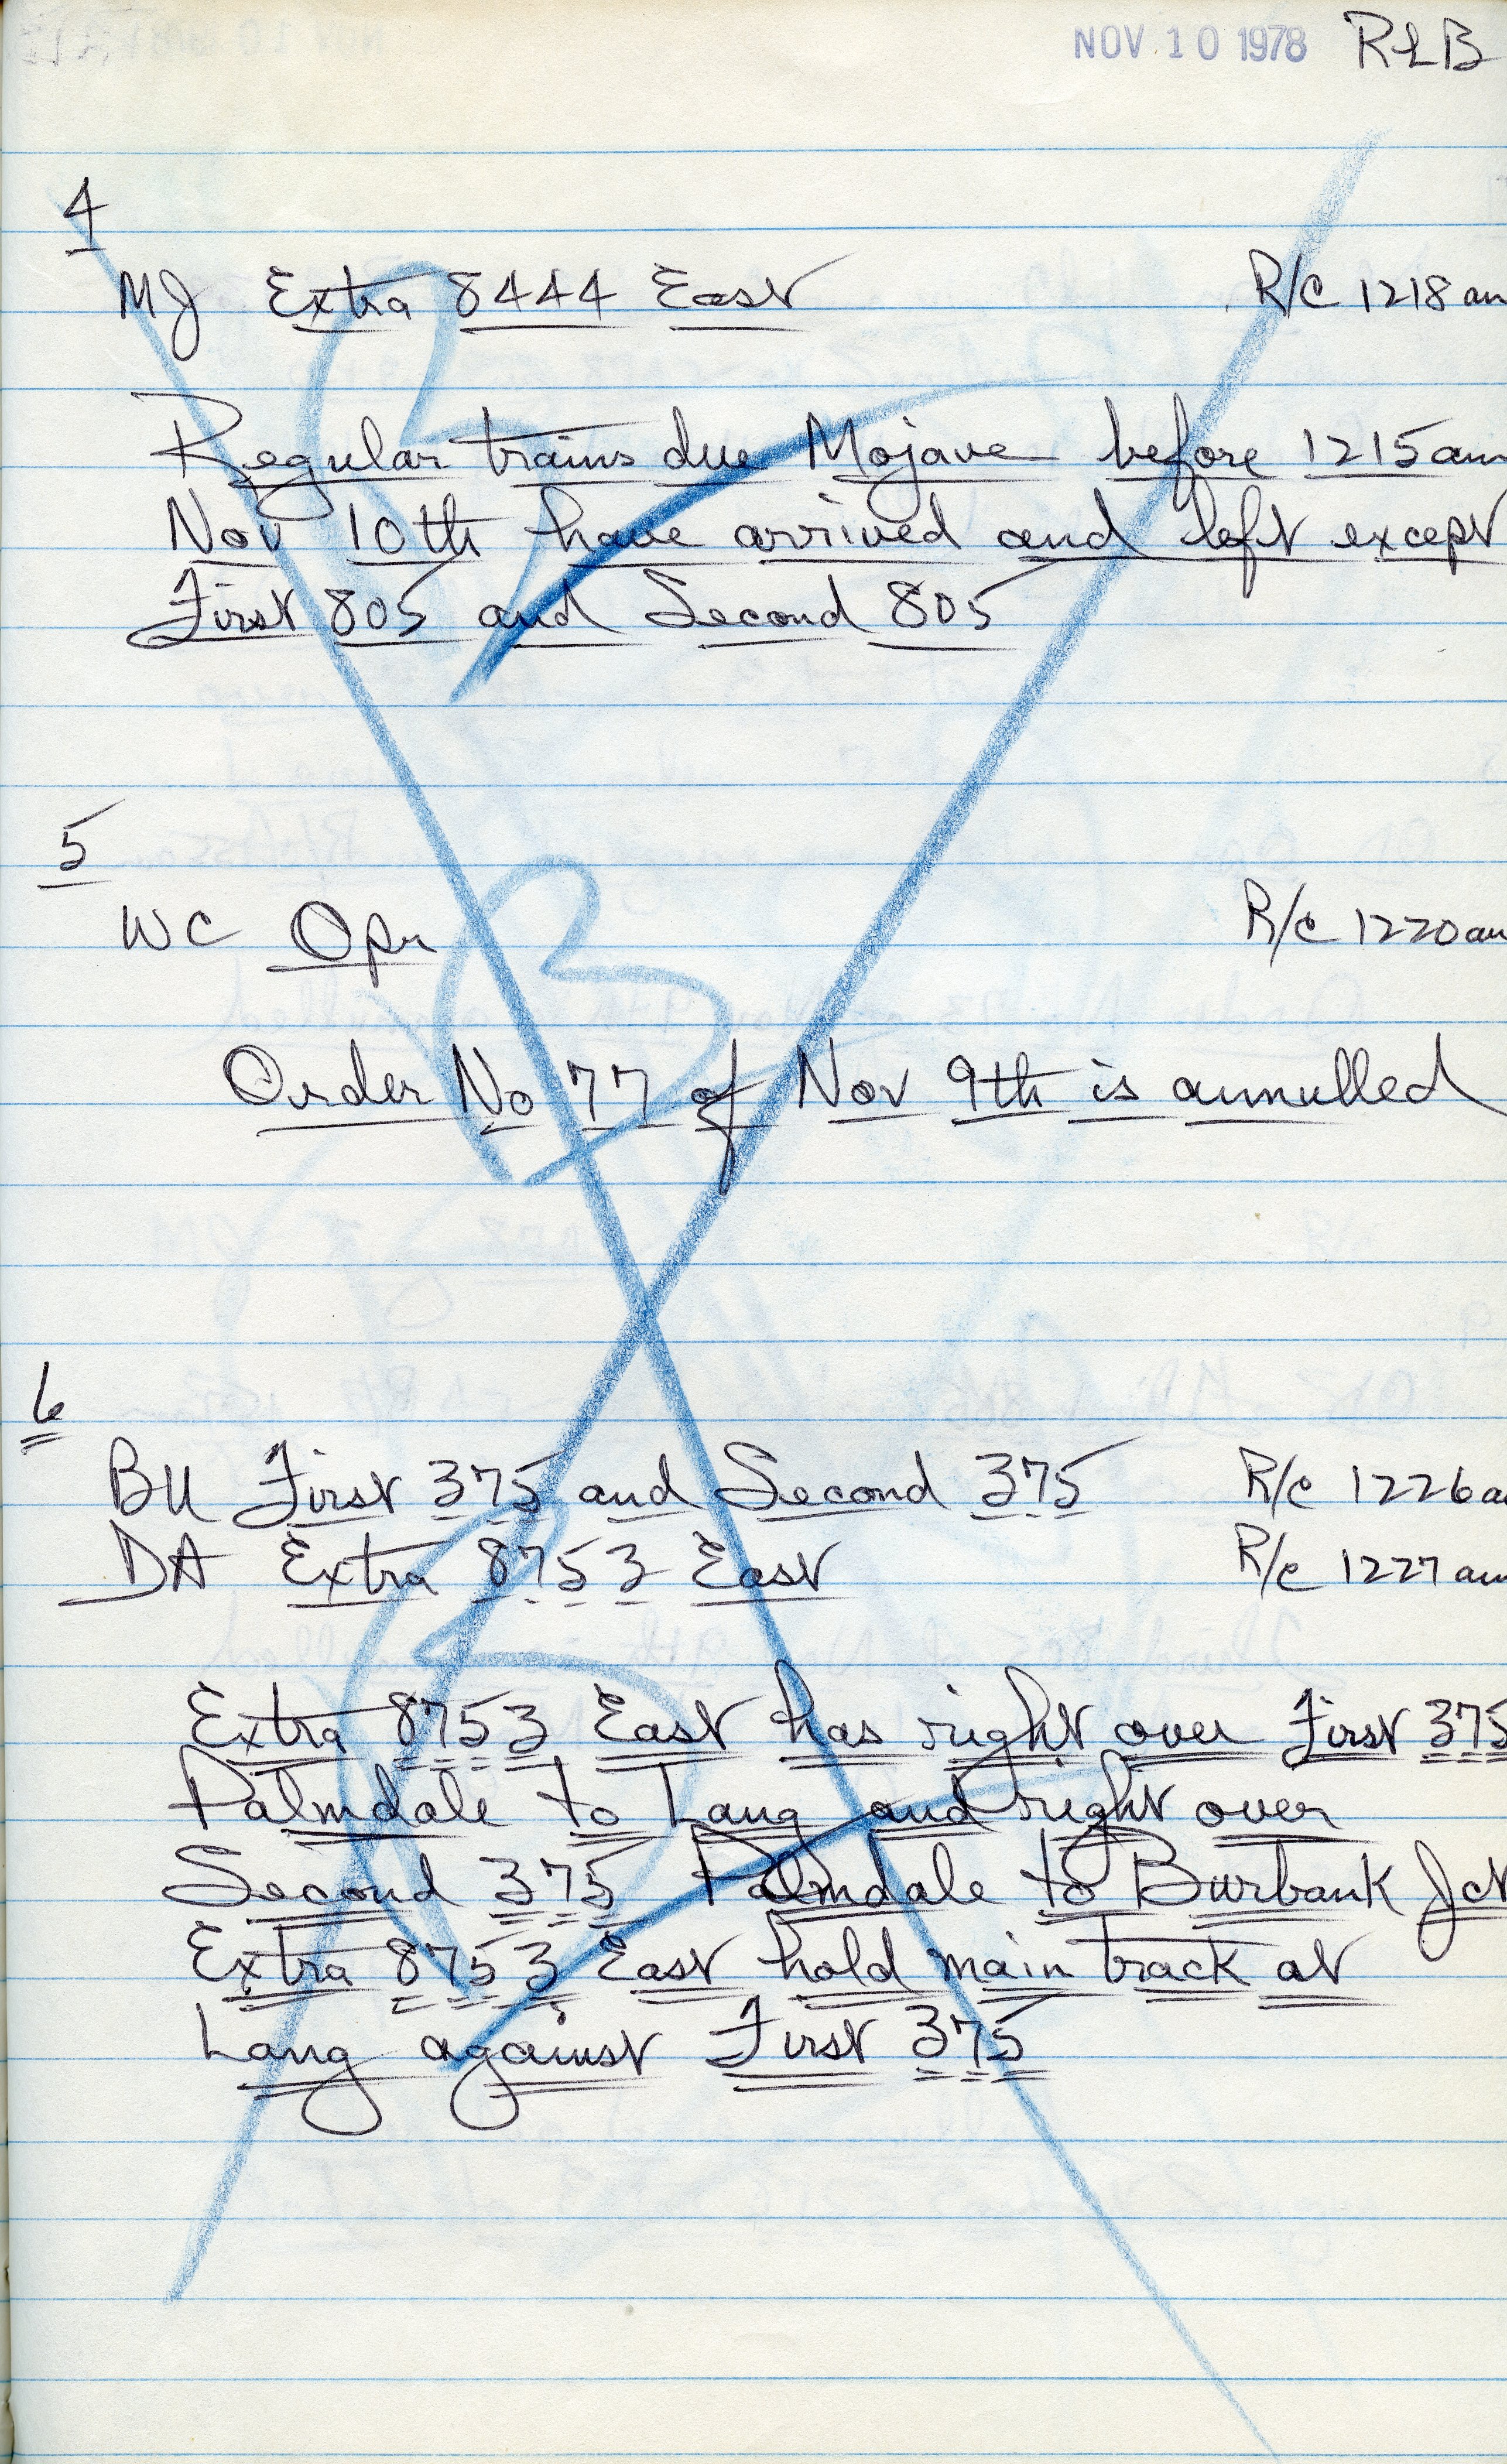 NOV 10 1978 RLB
4
MJ Extra 8444 East R/c 1218 am
Regular trains due Mojave before 1215 am
Nov 10th have arrived and left except
First 805 and Second 805
5
WC Opr R/c 1220 am
Order No 77 of Nov 9th is annulled
6
BU First 375 and Second 375 R/c 1226 a
DA Extra 8753 East R/c 1227 am
Extra 8753 East has right over First 375
Palmdale to Lang and right over
Second 375 Palmdale to Burbank Jct
Extra 8753 East hold main track at
Lang against First 375